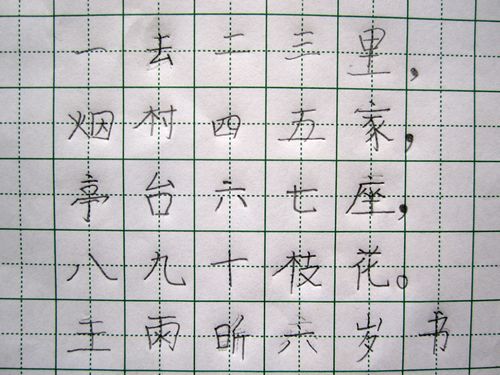 一去二三里，
烟村四五家，
亭台六七座，
八九十枝花。
王雨昕六岁书